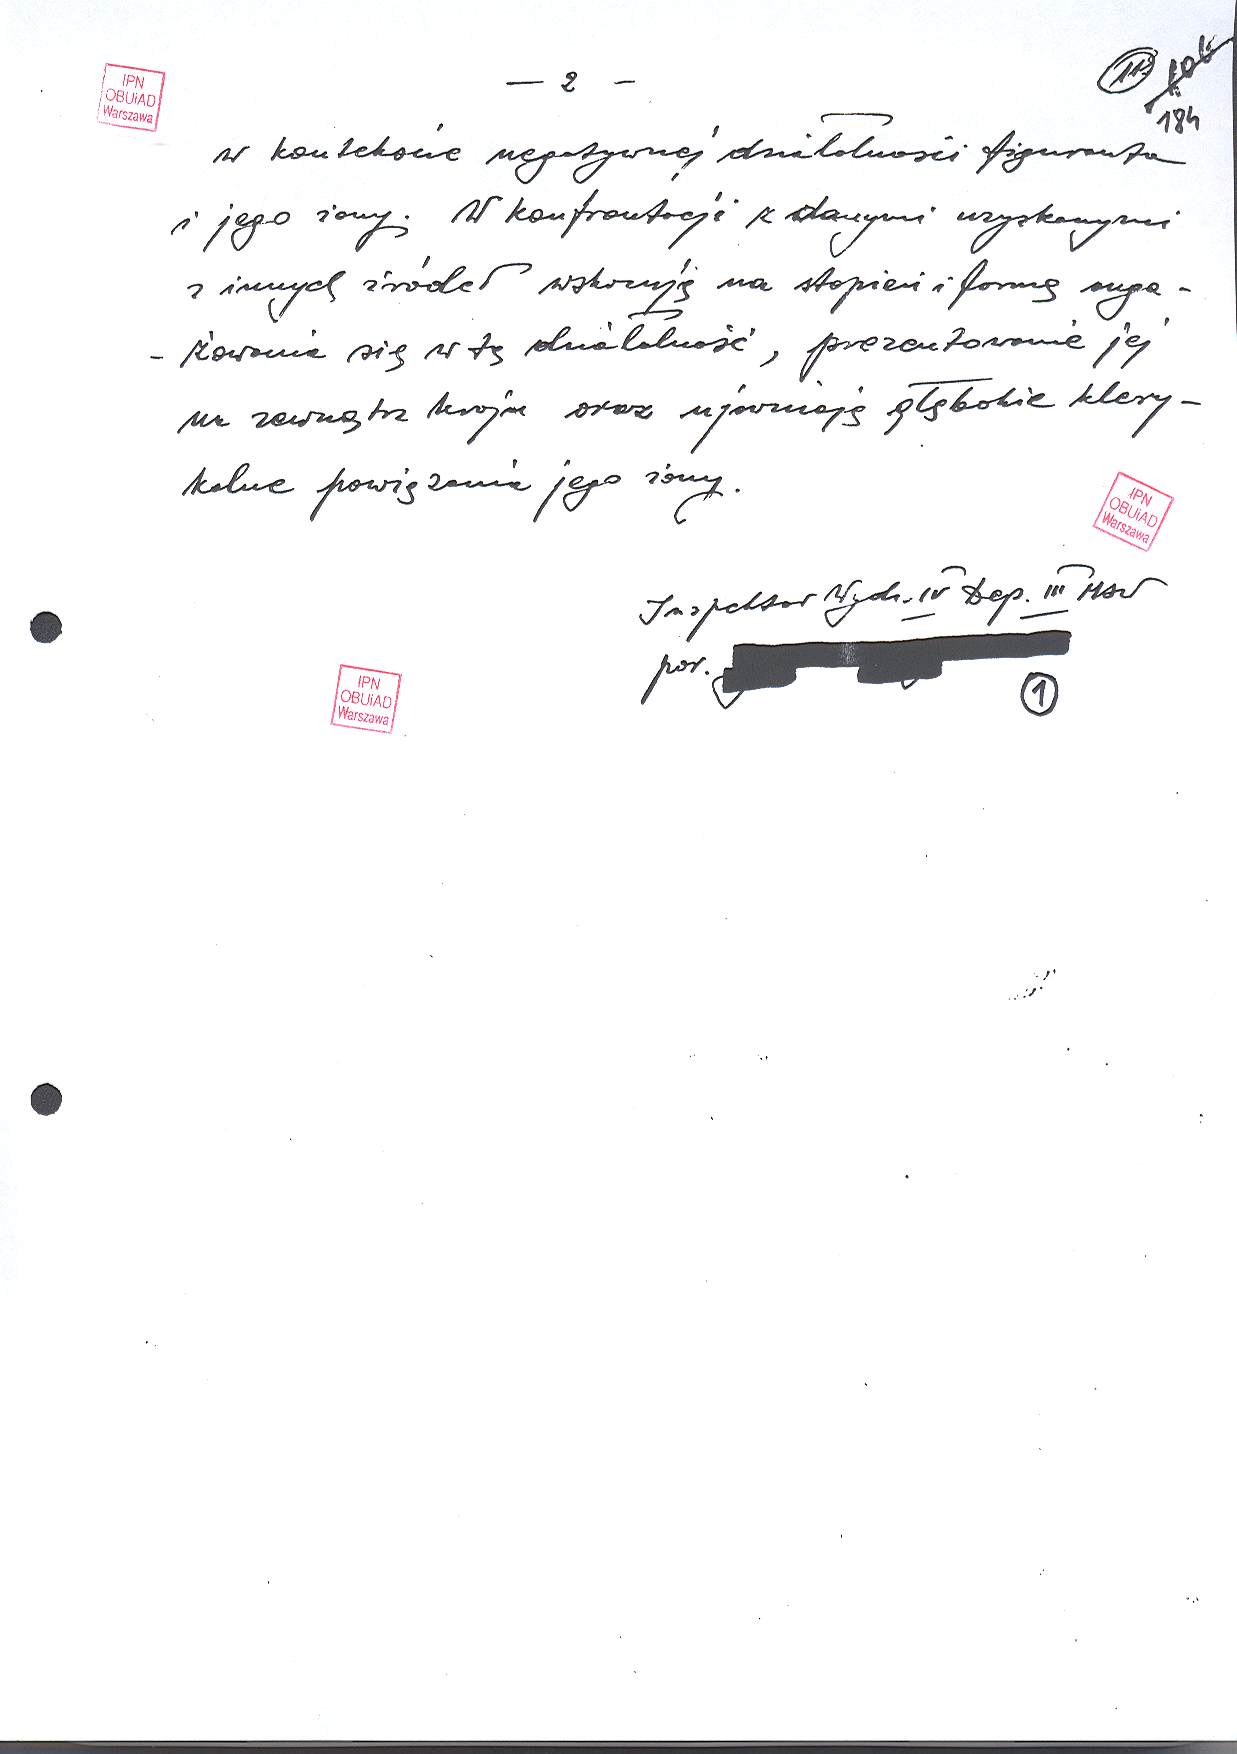 IPN
OBUiAD
Warszawa
— 2 —
11.
184
w kontekście negatywnej działalności figuranta
i jego żony. W konfrontacji z danymi uzyskanymi
z innych źródeł wskazują na stopień i formę anga-
- żowania się w tę działalność, prezentowanie jej
na zewnątrz kraju oraz ujawniają głębokie klery-
kalne powiązania jego żony.
IPN
OBUiAD
Warszawa
Inspektor Wydz. IV Dep. III MSW
por.
1
IPN
OBUiAD
Warszawa